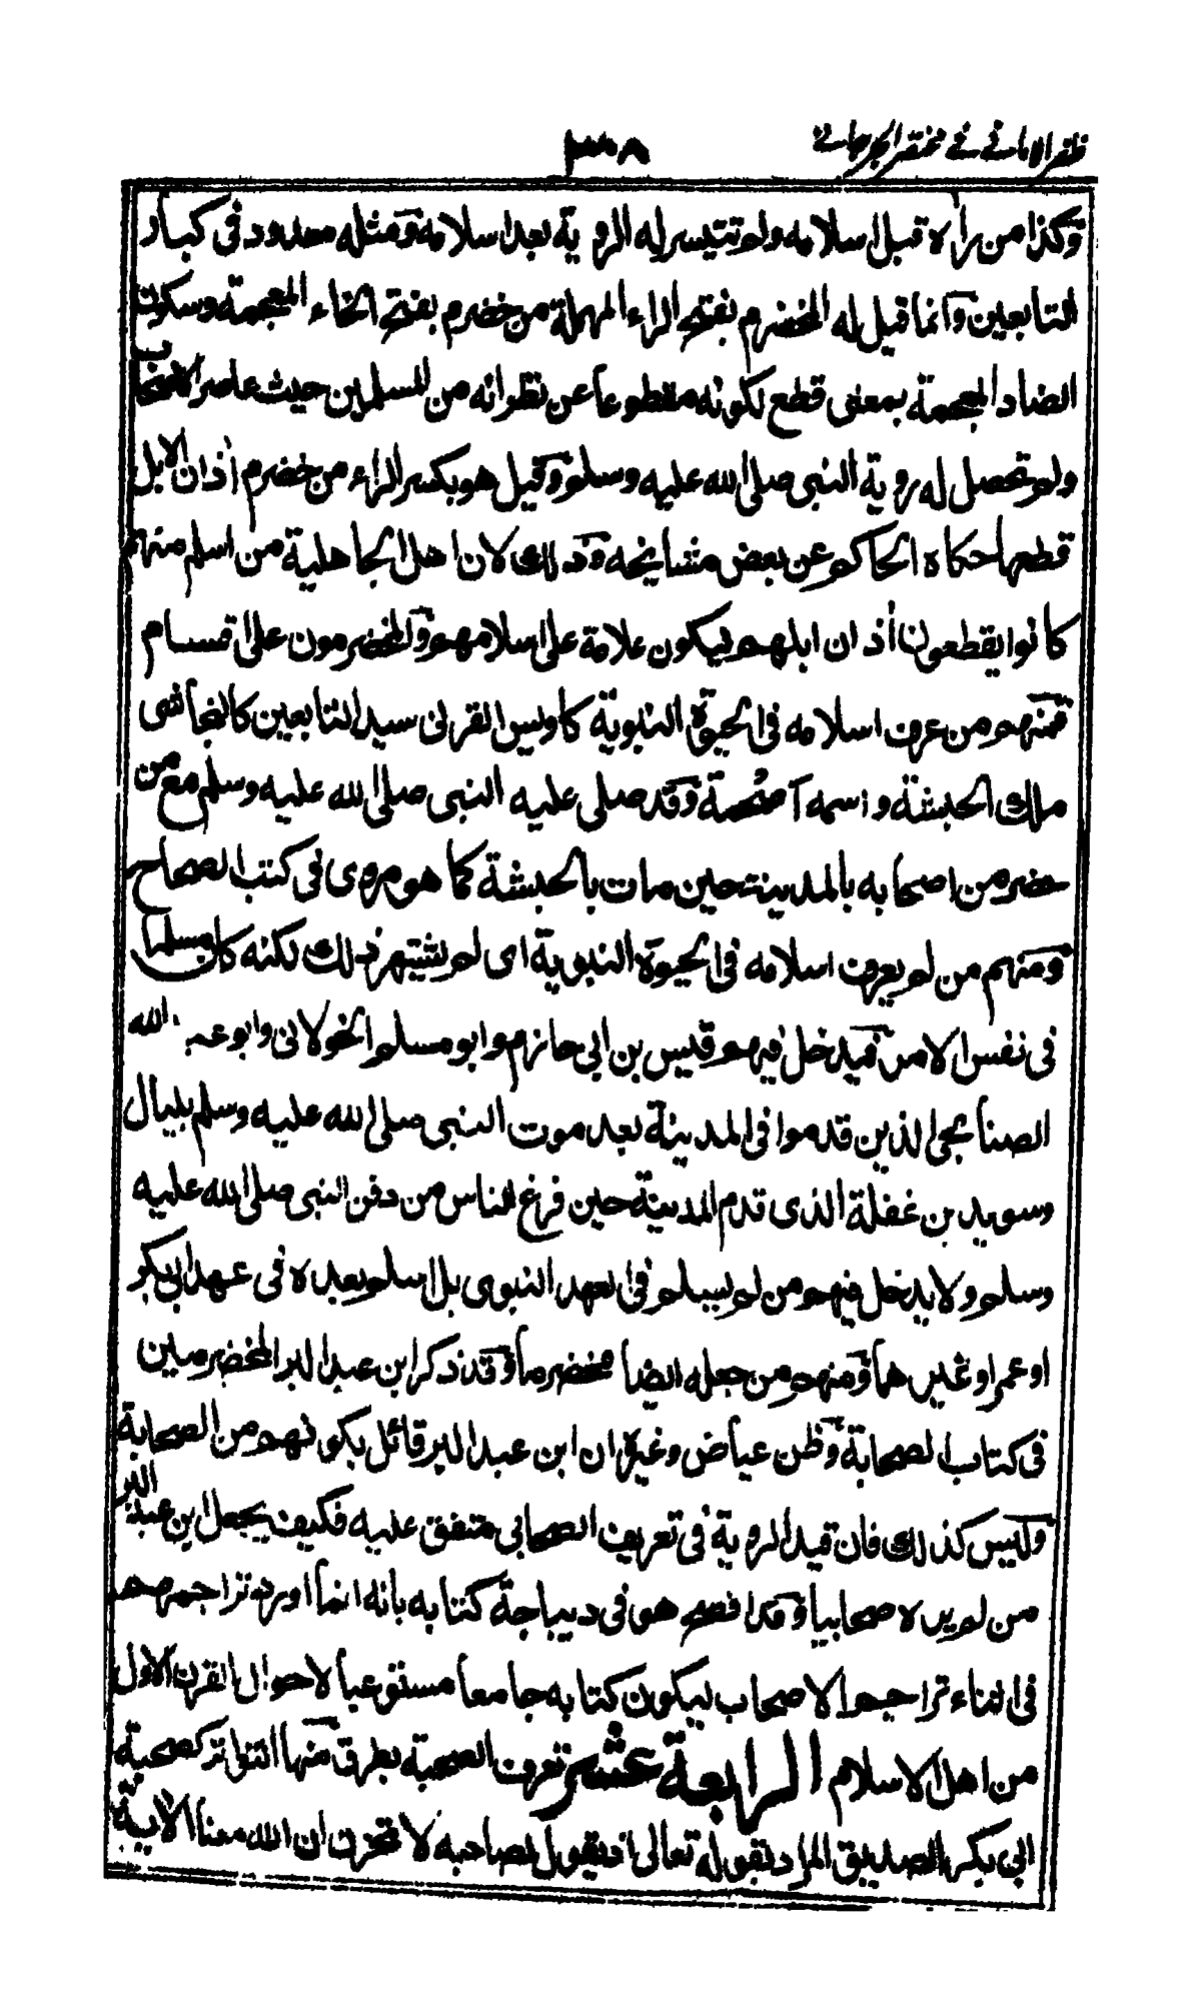 ظفر الاماني في مختصر الجرجاني
٣٠٨
وكذا من رأه قبل اسلامه ولم تتيسر له الروية بعد اسلامه ومثله معدود في كبار
التابعين وانما قيل له المخضرم بفتح الراء المهملة من خضرم بفتح الخاء المعجمة وسكون
الضاد المعجمة بمعنى قطع لكونه مقطوعا عن نظرائه من المسلمين حيث عاصر الاصحاب
ولم تحصل له روية النبي صلى الله عليه وسلم وقيل هو بكسر الراء من خضرم أذان الابل
قطعها حكاه الحاكم عن بعض مشايخه وذلك لان اهل الجاهلية من اسلم منهم
كانوا يقطعون أذان ابلهم ليكون علامة على اسلامهم والمخضرمون على اقسام
فمنهم من عرف اسلامه في الحيوة النبوية كاويس القرني سيد التابعين كالنجاشي
ملك الحبشة واسمه آصحمة وقد صلى عليه النبي صلى الله عليه وسلم مع من
حضر من اصحابه بالمدينة حين مات بالحبشة كما هو مروى في كتب الصحاح
ومنهم من لم يعرف اسلامه في الحيوة النبوية اى لم يشتهر ذلك لكنه كان مسلما
في نفس الامر فيدخل فيهم قيس بن ابي حازم وابو مسلم الخولاني وابو عبد الله
الصنابحى الذين قدموا في المدينة بعد موت النبي صلى الله عليه وسلم بليال
وسويد بن غفلة الذى قدم المدينة حين فرغ الناس من دفن النبي صلى الله عليه
وسلم ولا يدخل فيهم من لم يسلم في العهد النبوى بل اسلم بعده في عهد ابي بكر
او عمر او غيرهما ومنهم من جعله ايضا مخضرما وقد ذكر ابن عبد البر المخضرمين
في كتاب الصحابة وظن عياض وغيره ان ابن عبد البر قائل بكونهم من الصحابة
وليس كذلك فان قيد الروية في تعريف الصحابي متفق عليه فكيف يجعل ابن عبد البر
من لم يره صحابيا وقد افصح هو في ديباجة كتابه بانه انما اورد تراجمهم
في اثناء تراجم الاصحاب ليكون كتابه جامعا مستوعبا لاحوال القرن الاول
من اهل الاسلام الرابعة عشر تعرف الصحبة بطرق منها التواتر كصحبة
ابي بكر الصديق المراد بقوله تعالى اذ يقول لصاحبه لا تحزن ان الله معنا الاية